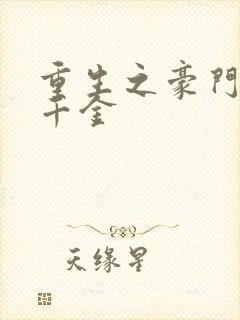 重生之豪門
千金
天缘星